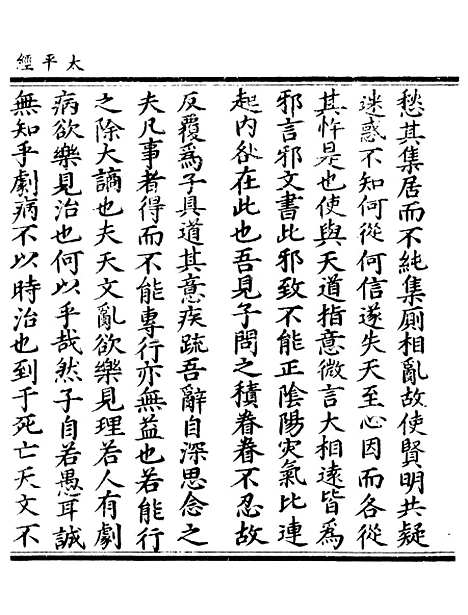 太平經
愁其集居而不純集厠相亂故使賢明共疑
迷惑不知何從何信遂失天至心因而各從
其忤是也使與天道指意微言大相遠皆爲
邪言邪文書此邪致不能正陰陽灾氣比連
起内咎在此也吾見子問之積眷眷不忍故
反覆爲子具道其意疾疏吾辭自深思念之
夫凡事者得而不能專行亦無益也若能行
之除大謫也夫天文亂欲樂見理若人有劇
病欲樂見治也何以乎哉然子自若愚耳誠
無知乎劇病不以時治也到于死亡天文不